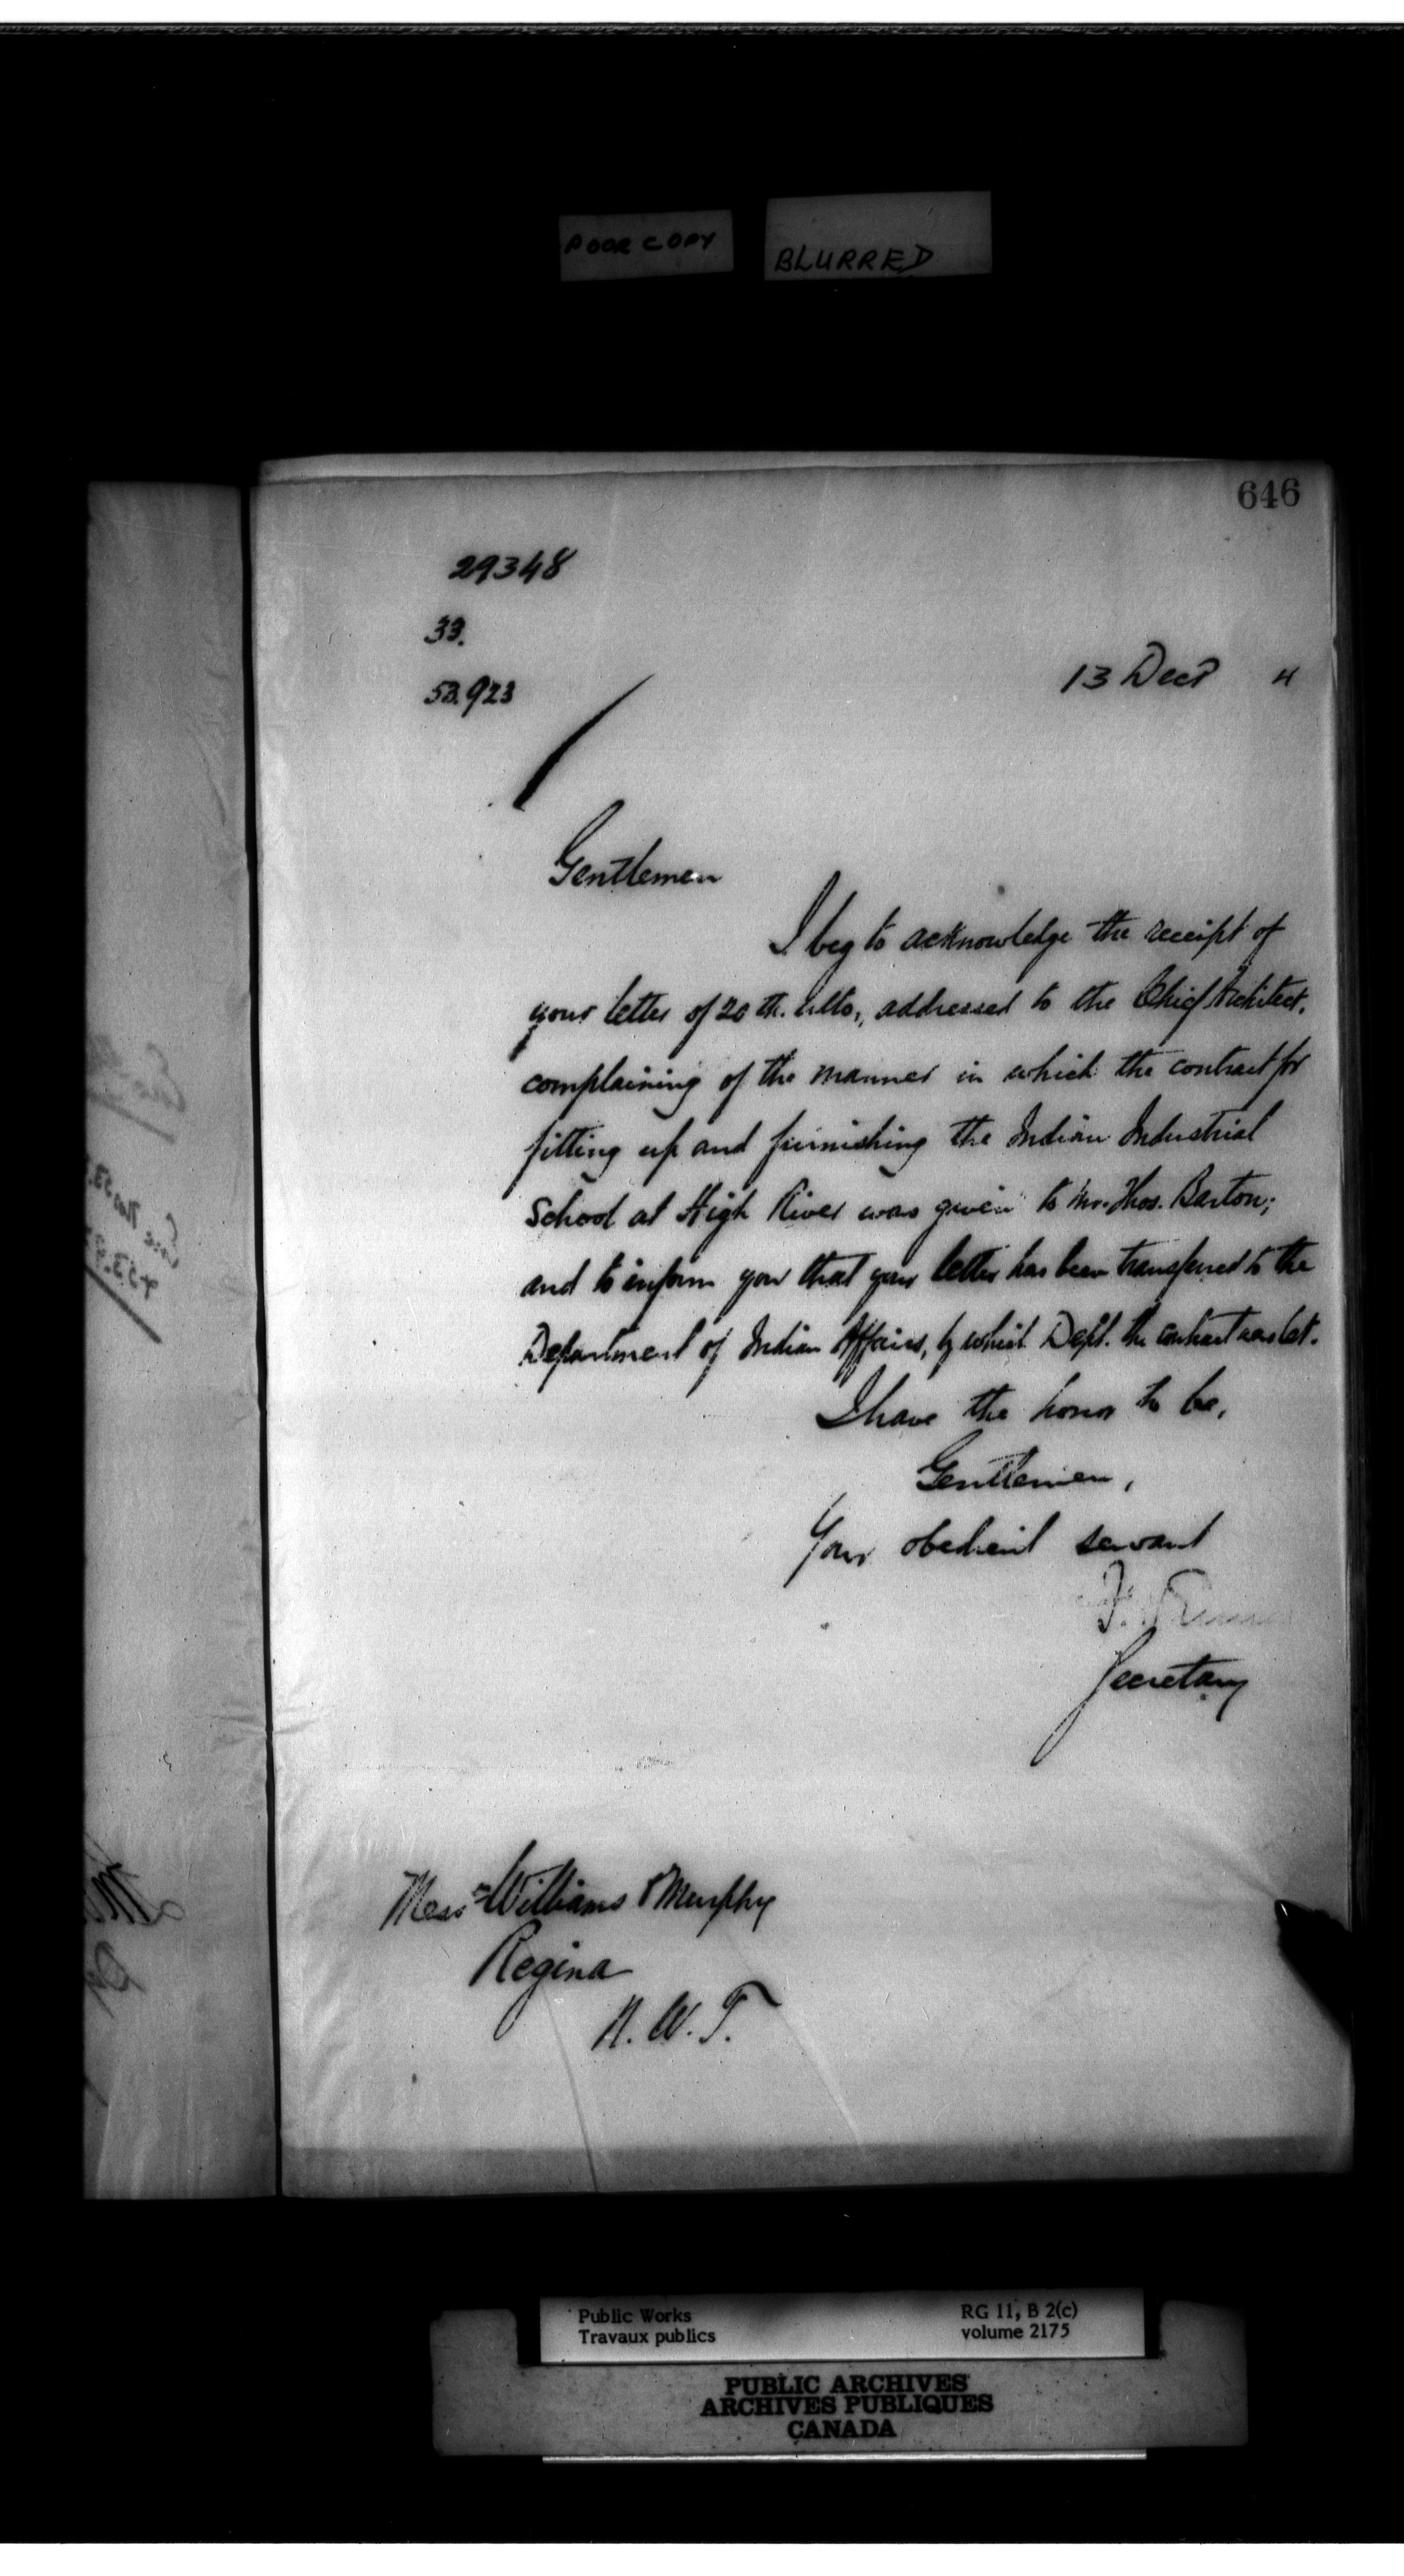 POOR COPY
BLURRED
646
29348
33.
53.923
13 Decr 4
Gentlemen
I beg to acknowledge the receipt of
your letter of 20th. ulto., addressed to the Chief Architect,
complaining of the manner in which the contract for
fitting up and furnishing the Indian Industrial
School at High River was given to Mr. Thos. Barton;
and to inform you that your letter has been transferred to the
Department of Indian Affairs, by which Dept. the contract was let.
I have the honor to be,
Gentlemen,
Your obedient servant
Secretary
Messrs Williams & Murphy
Regina
N. W. T.
Public Works
Travaux publics
RG 11, B 2(c)
volume 2175
PUBLIC ARCHIVES
ARCHIVES PUBLIQUES
CANADA